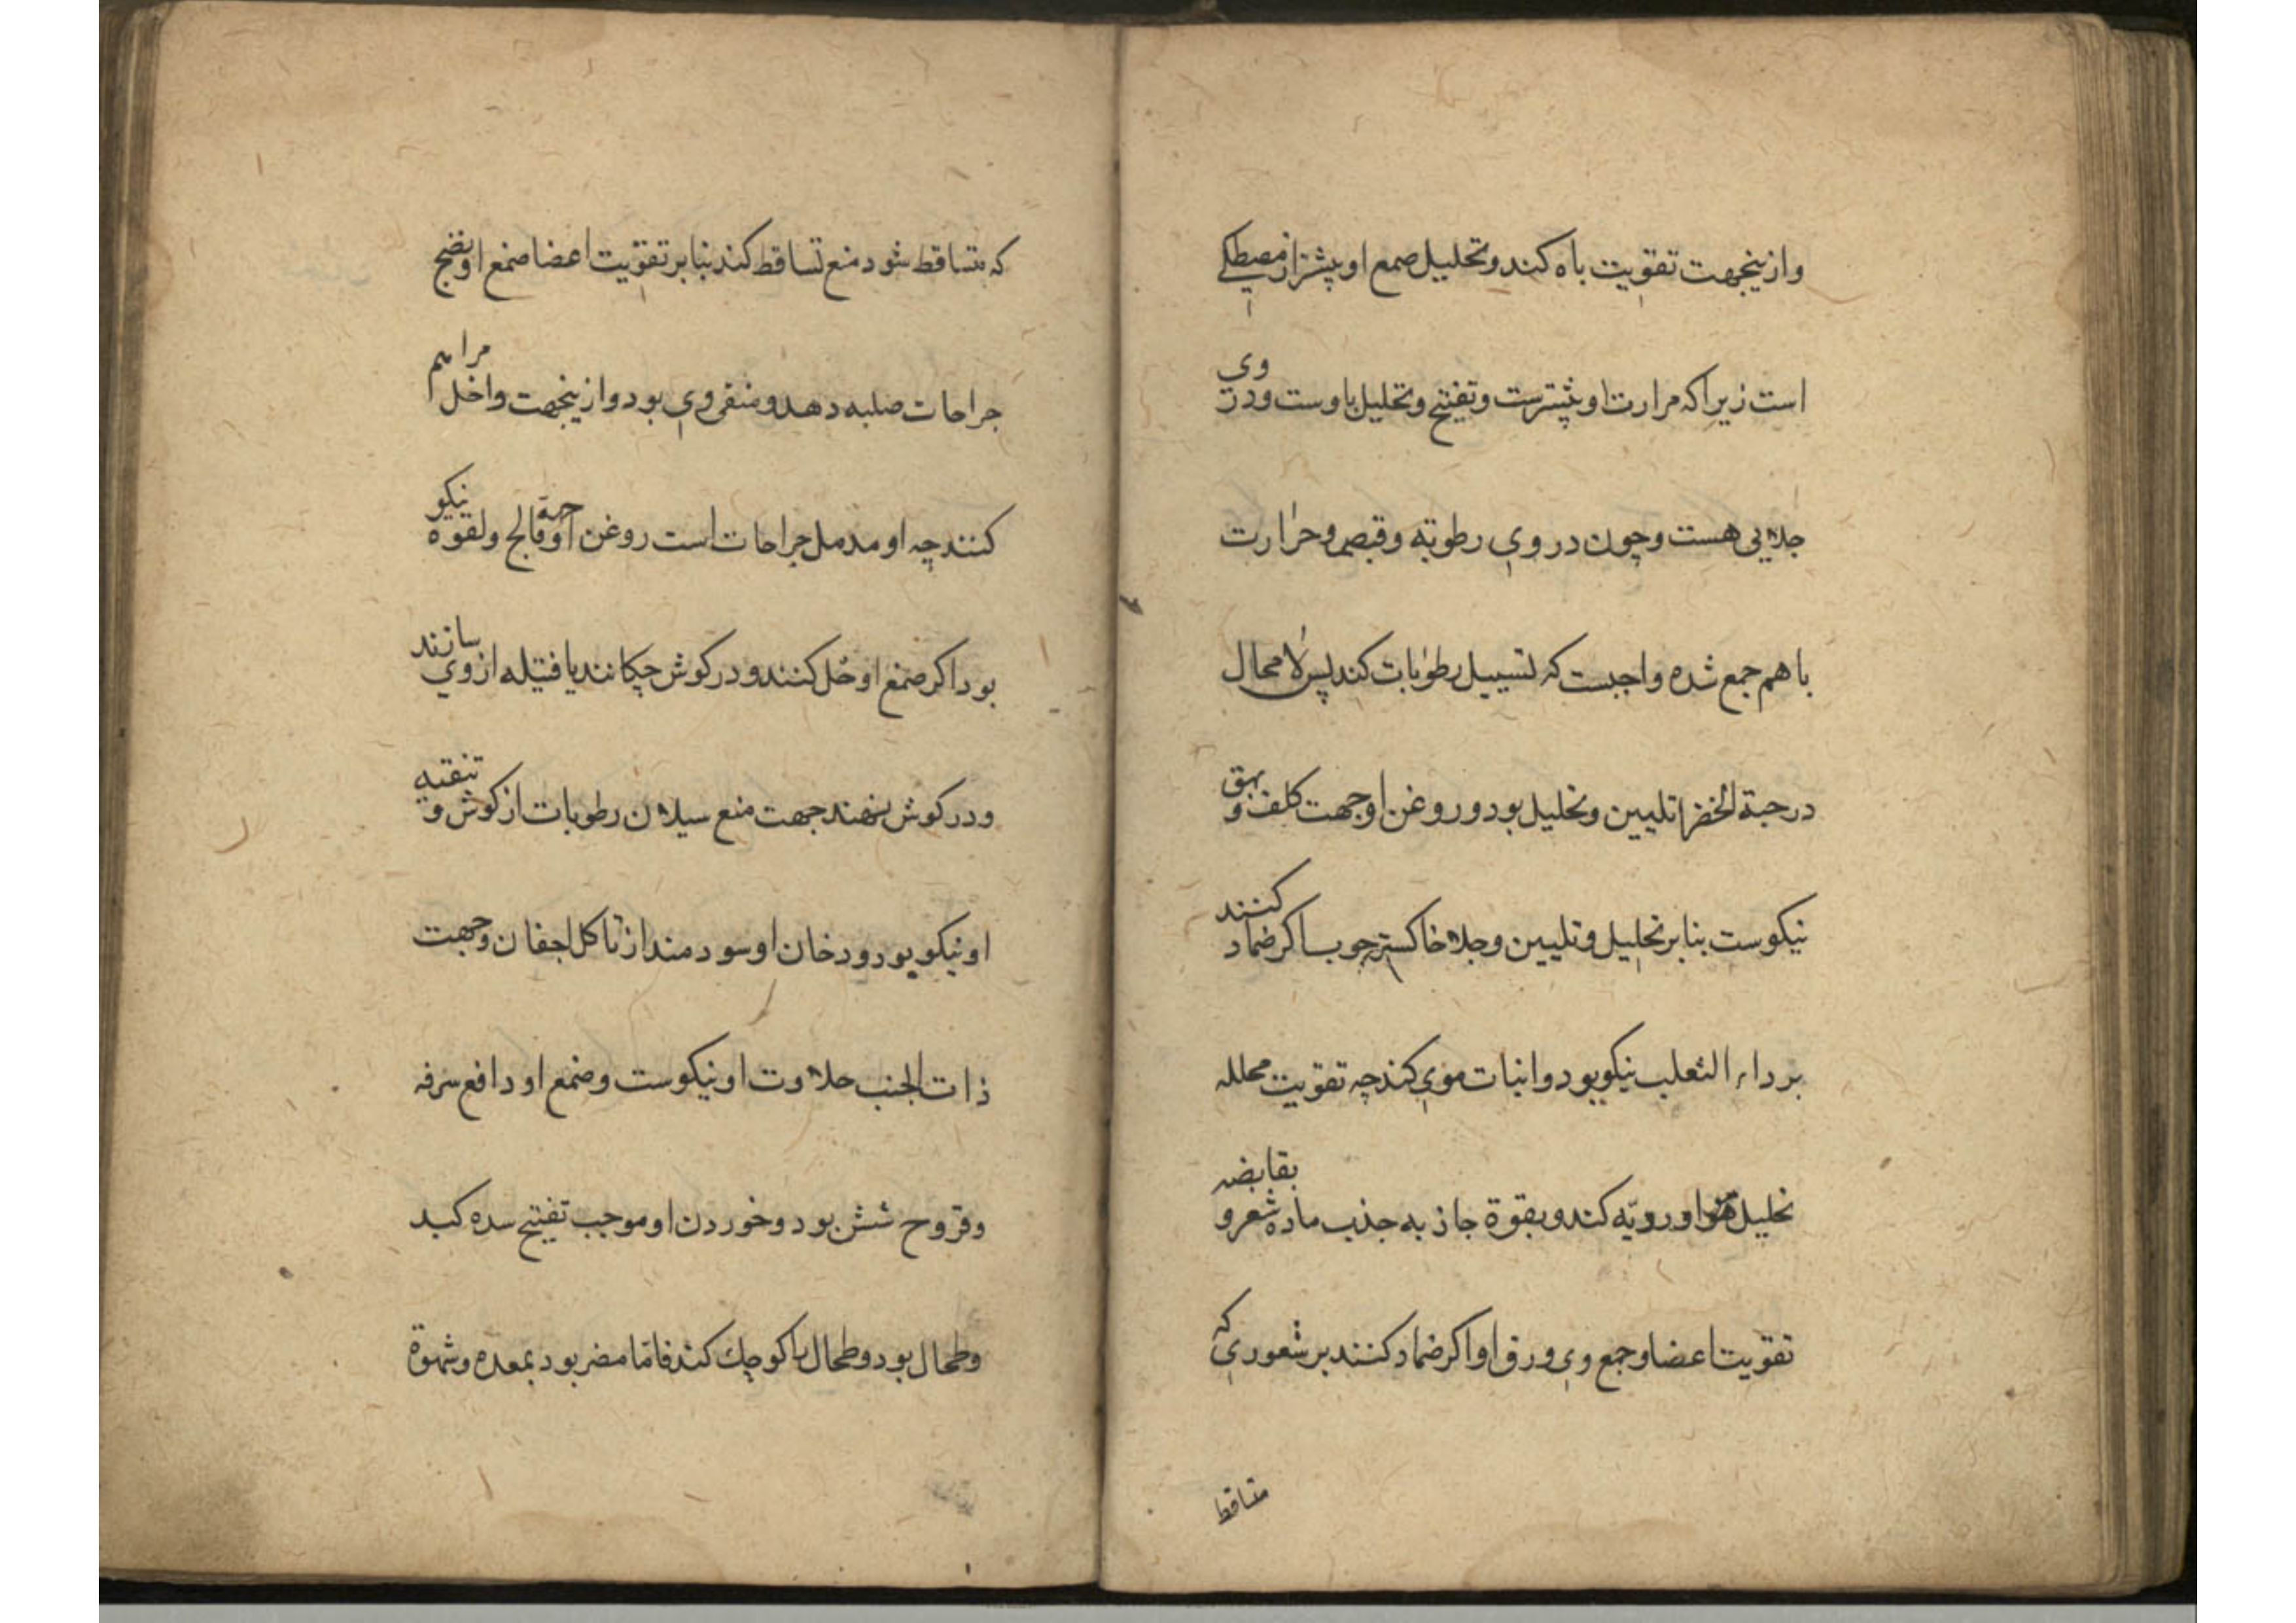 وازینجهت تقویت باه کند و تحلیل صمغ او پیشتر از مصطکی
است زیرا که مرارت او پیشترست و تفتیح و تحلیل با اوست و در وی
جلایی هست و چون در وی رطوبة و قبض و حرارت
با هم جمع شده واجبست که تسییل رطوبات کند پس لا محال
در حبة الخضرا تلیین و تحلیل بود و روغن او جهت کلف و بهق
نیکوست بنابر تحلیل و تلیین و جلا خاکستر چوب را اکر ضماد کنند
بر داء الثعلب نیکو بود و انبات موی کند چه تقویت محلله
تحلیل او رویّه کند و بقوة جاذبه جذب ماده شعر و بقابضه
تقویت اعضا و جمع وی ورق او اکر ضماد کنند بر شعوری که
متاقط
که متساقط شود منع تساقط کند بنابر تقویت اعضا صمغ او نضج
جراحات صلبه دهد و منقی وی بود و ازینجهت داخل مراهم
کنند چه او مدمل جراحات است روغن او جهة فالج و لقوه نیکو
بود اکر صمغ او حل کنند و در کوش چکانند یا فتیله از وی سازند
و در کوش نهند جهت منع سیلان رطوبات از کوش و تنقیه
او نیکو بود و دخان او سودمند از تاکل اجفان و جهت
ذات الجنب حلاوت او نیکوست و صمغ او دافع سرفه
و قروح شش بود و خوردن او موجب تفتیح سده کبد
و طحال بود و طحال را کوچک کند فامّا مضر بود بمعده و شهوة